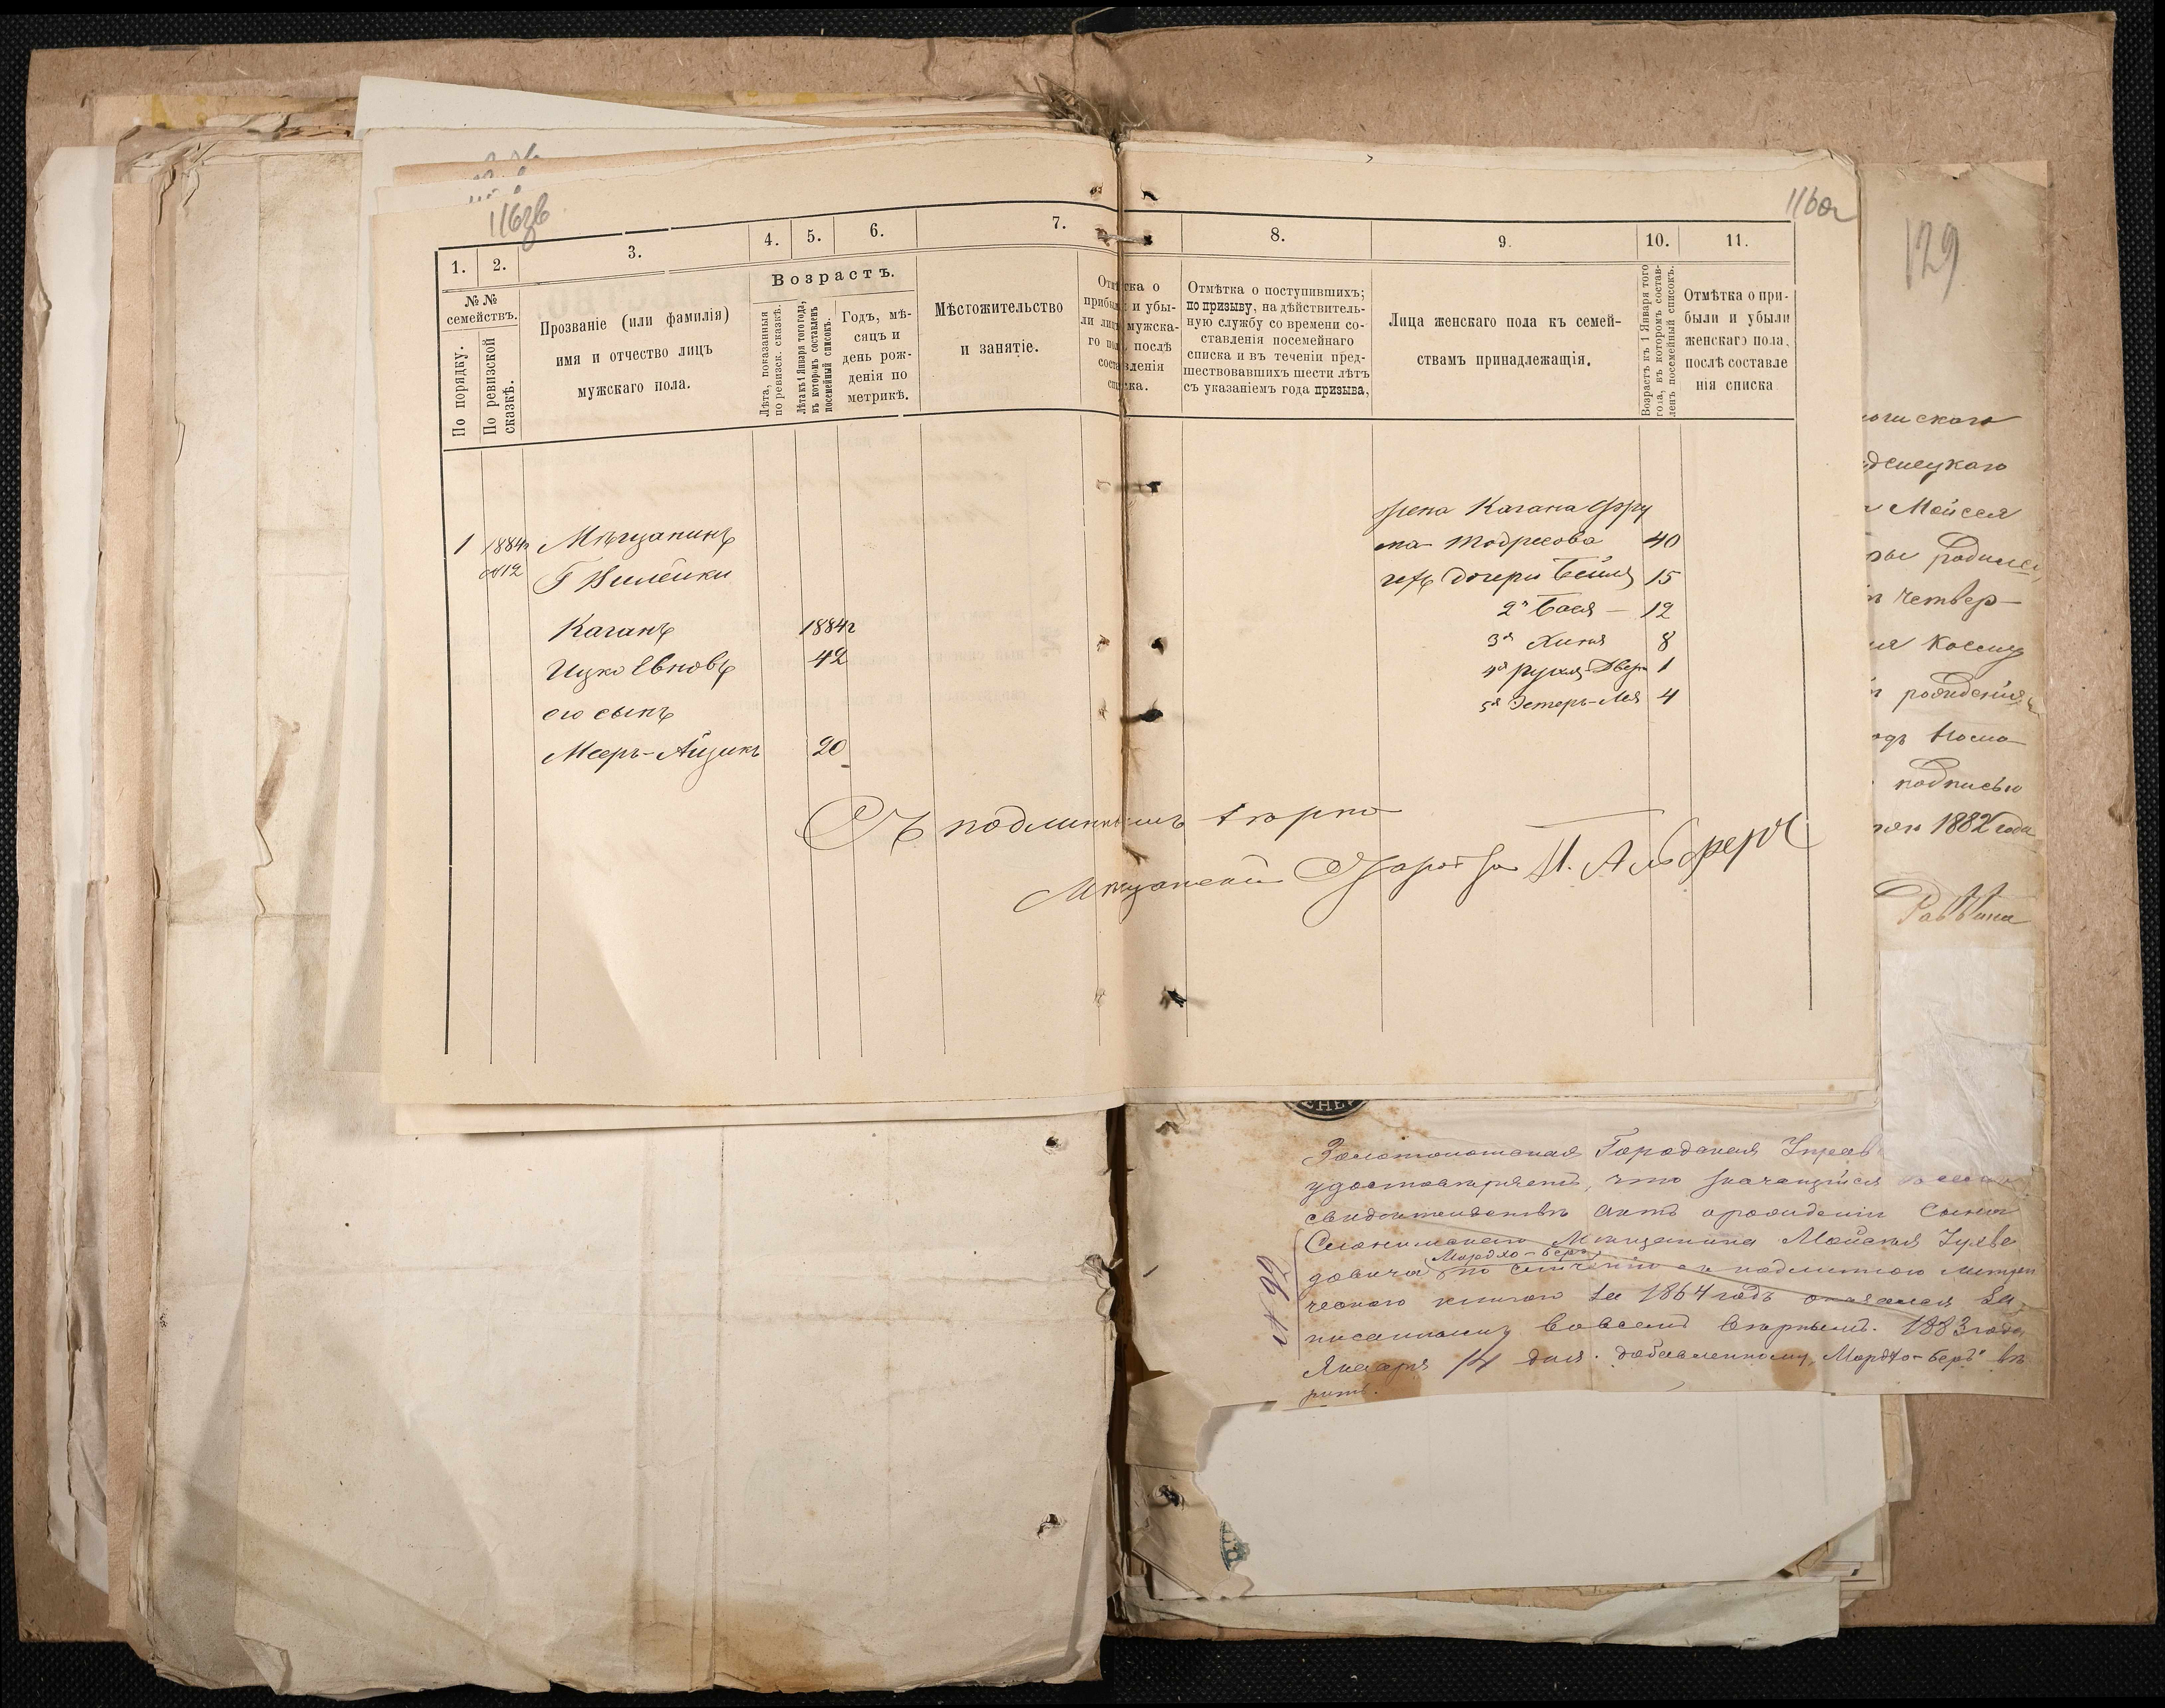 116зв
116а
129
1.
2.
3.
4.
5.
6.
7.
8.
9.
10.
11.
№ №
семействъ.
По порядку.
По ревизской
сказкѣ.
Прозваніе (или фамилія)
имя и отчество лицъ
мужскаго пола.
Возрастъ.
Лѣта, показанныя
по ревизск. сказкѣ.
Лѣта къ 1 Января того года,
въ которомъ составленъ
посемейный списокъ.
Годъ, мѣ-
сяцъ и
день рож-
денія по
метрикѣ.
Мѣстожительство
и занятіе.
Отмѣтка о
прибыли и убы-
ли лицъ мужска-
го пола, послѣ
составленія
списка.
Отмѣтка о поступившихъ;
по призыву, на дѣйствитель-
ную службу со времени со-
ставленія посемейнаго
списка и въ теченіи пред-
шествовавшихъ шести лѣтъ
съ указаніемъ года призыва,
Лица женскаго пола къ семей-
ствамъ принадлежащія.
Возрастъ къ 1 Января того
года, въ которомъ состав-
ленъ посемейный списокъ.
Отмѣтка о при-
были и убыли
женскаго пола,
послѣ составле
нія списка
1 1884г Мѣщанинъ
№12 Г Вилейки
Каганъ 1884г
Ицко Евновъ 42
его сынъ
Мееръ-Айзикъ 20
жена Кагана Фру
ма Тодресова 40
ихъ дочери Бейля 15
2я Бася — 12
3я Хиня 8
4я Рухля Двера 1
5я Эстеръ-Лея 4
Съ подлиннымъ вѣрно
Мѣщанскій Староста
скаго
Мойсея
родился
четвер-
рожденія
подписью
1882 года
Раввина
Золотоношская Городская Управ
удостовѣряетъ, что значащійся
свидѣтельствѣ актъ о рожденіи сына
Слонимскаго Мѣщанина Мойсея
Мордхо-Беръ
довича по сличеніи съ подлинною метри
ческою книгою за 1864 годъ оказался за
писаннымъ вовсемъ вѣрнымъ. 1883 года
Января 14 дня. добавленному „Мордхо-Беръ" вѣ
рить.
№ 92